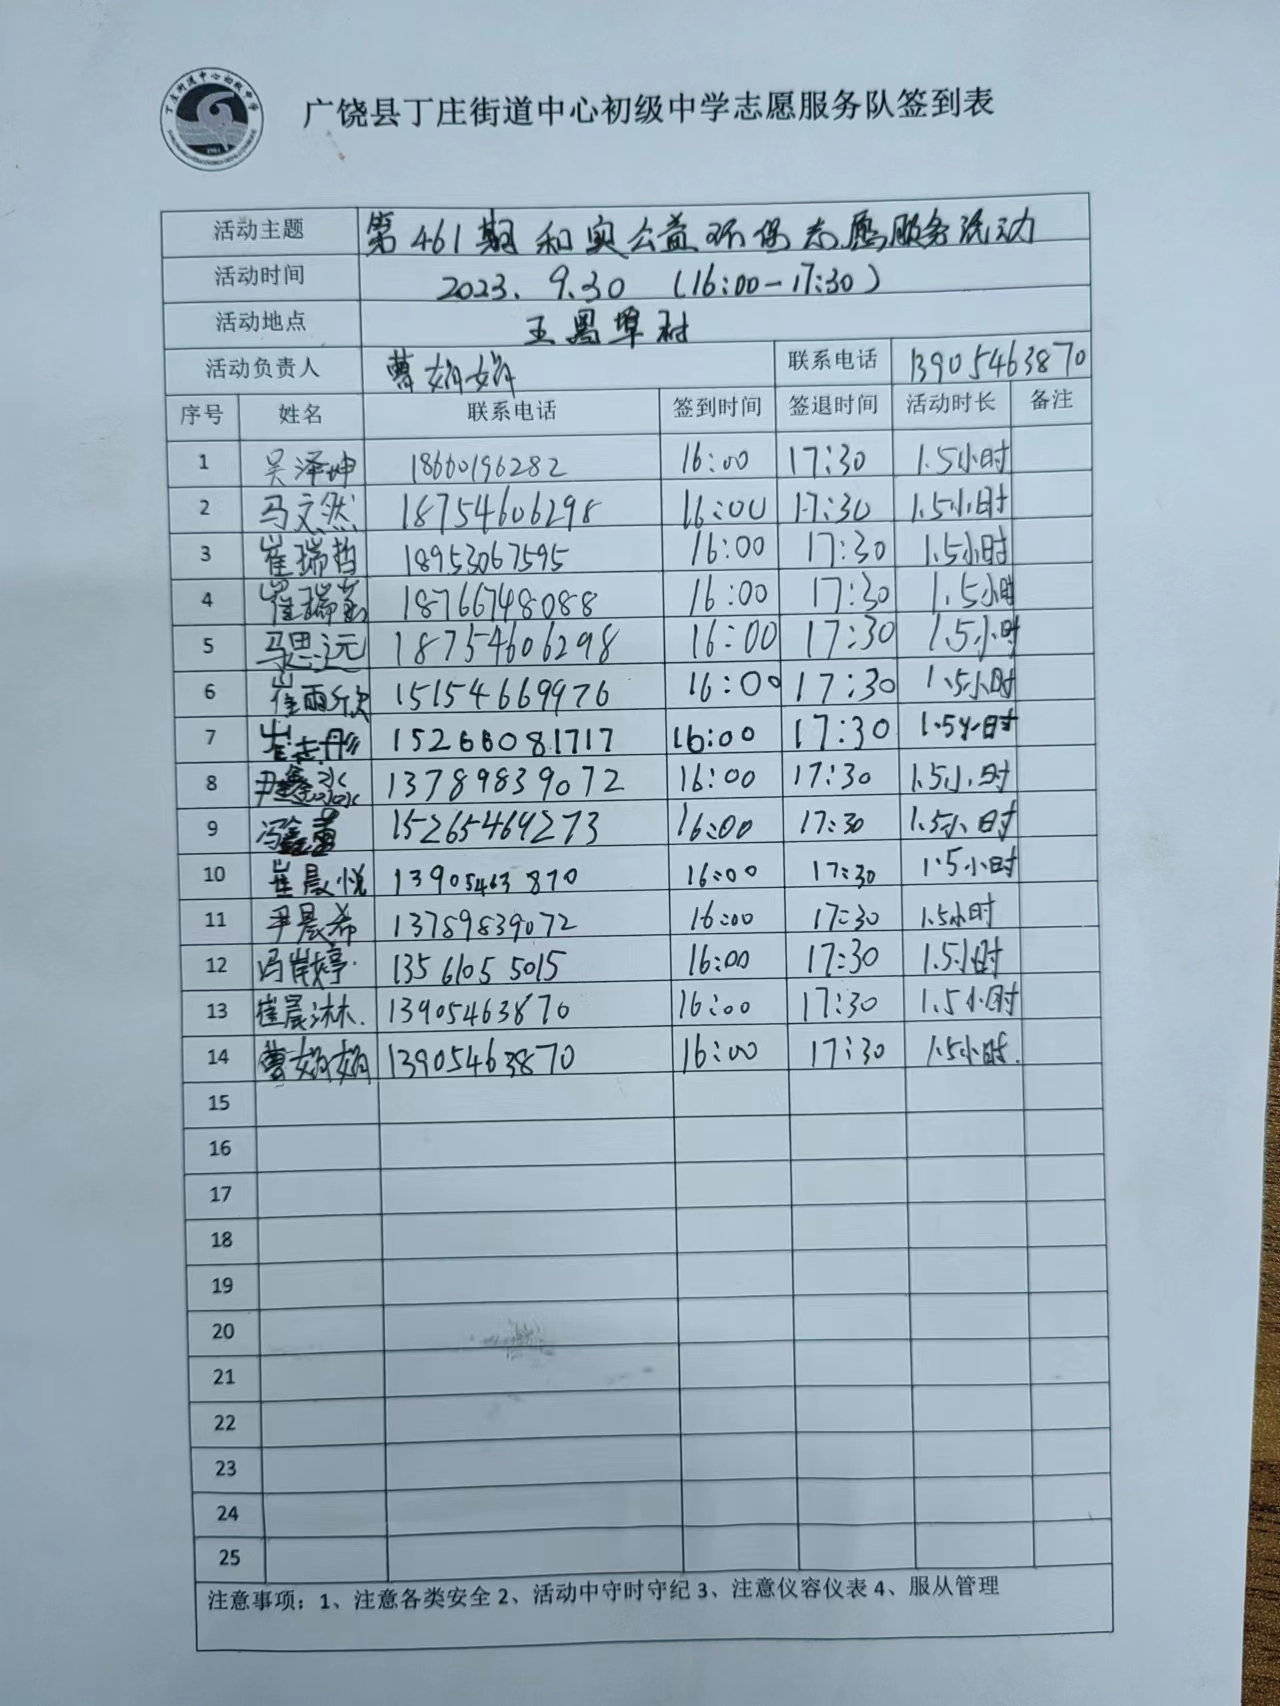 丁庄街道中心初级中学
广饶县丁庄街道中心初级中学志愿服务队签到表
活动主题 第461期和奥公益环保志愿服务活动
活动时间 2023.9.30 (16:00-17:30)
活动地点 王署埠村
活动负责人 曹娟娟 联系电话 13905463870
序号 姓名 联系电话 签到时间 签退时间 活动时长 备注
1 吴泽坤 18660196282 16:00 17:30 1.5小时
2 马文然 18754606298 16:00 17:30 1.5小时
3 崔瑞哲 18953067595 16:00 17:30 1.5小时
4 崔瑞 18766748088 16:00 17:30 1.5小时
5 马思远 18754606298 16:00 17:30 1.5小时
6 崔雨欣 15154669976 16:00 17:30 1.5小时
7 崔志彤 15266081717 16:00 17:30 1.5小时
8 尹鑫淼 13789839072 16:00 17:30 1.5小时
9 冯鑫蕾 15265464273 16:00 17:30 1.5小时
10 崔晨悦 13905463870 16:00 17:30 1.5小时
11 尹晨希 13789839072 16:00 17:30 1.5小时
12 冯婷 13561055015 16:00 17:30 1.5小时
13 崔晨沐 13905463870 16:00 17:30 1.5小时
14 曹娟娟 13905463870 16:00 17:30 1.5小时.
15
16
17
18
19
20
21
22
23
24
25
注意事项：1、注意各类安全 2、活动中守时守纪 3、注意仪容仪表 4、服从管理